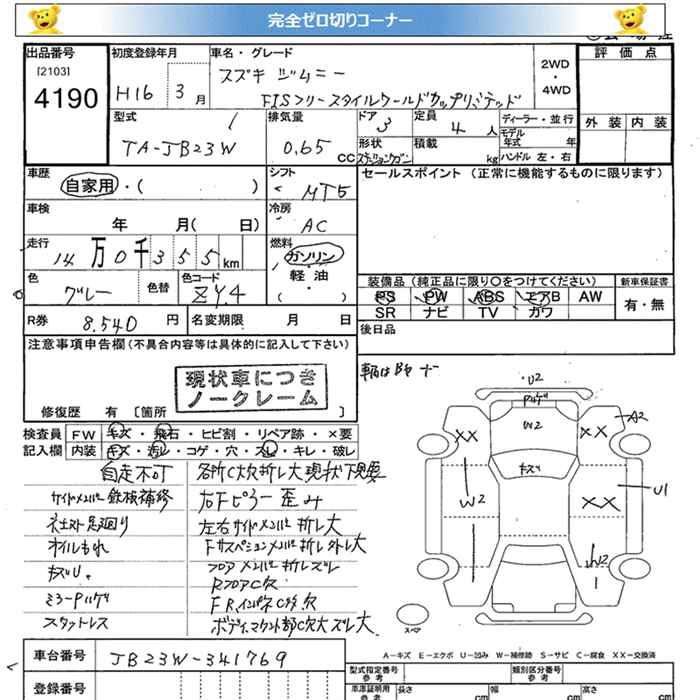 完全ゼロ切りコーナー
出品番号
[2103]
4190
初度登録年月
H16 3月
車名・グレード
スズキ ジムニー
FISフリースタイルワールドカップリミテッド
2WD
・
4WD
評価点
外装 内装
型式
TA-JB23W
排気量
0.65 CC
ドア 3
定員 4 人
形状 ステーションワゴン
積載 kg
ディーラー・並行
モデル年式 年
ハンドル 左・右
車歴
自家用・( )
シフト
MT5
車検
年 月( 日)
冷房
AC
走行
14万0千355km
燃料
ガソリン
軽・油
( ・ )
色
グレー
色替
色コード
ZY4
R券 8.540 円
名変期限 月 日
セールスポイント (正常に機能するものに限ります)
装備品 (純正品に限り○をつけてください)
PS PW ABS エアB AW
SR ナビ TV カワ
新車保証書
有・無
後日品
注意事項申告欄(不具合内容等は具体的に記入して下さい)
現状車につき
ノークレーム
修復歴 有 [箇所 ]
検査員 FW キズ・飛石・ヒビ割・リペア跡・×要
記入欄 内装 キズ・汚レ・コゲ・穴・スレ・キレ・破レ
自走不可 各所C大穴折レ大現状下見要
サイドメンバー鉄板補修 右Fピラー歪み
ネセスト足廻り 左右サイドメンバー折レ大
オイルもれ Fサスペンションメンバー折レ外レ大
キズU。 フロアメンバー折レズレ
ミラーアルゲ RフロアC穴
スタットレス FR.インパネC等穴
ボディマウント部C穴大ズレ大
U2
アルゲ
W2
A2
××
××
キズリ
W2
××
U1
W2
スペア
A-キズ E-エクボ U-凹み W-補修跡 S-サビ C-腐食 XX-交換済
車台番号
JB23W-341769
登録番号
型式指定番号
参考
類別区分番号
参考
車庫証明用
参考
長さ
cm
幅
cm
高さ
cm